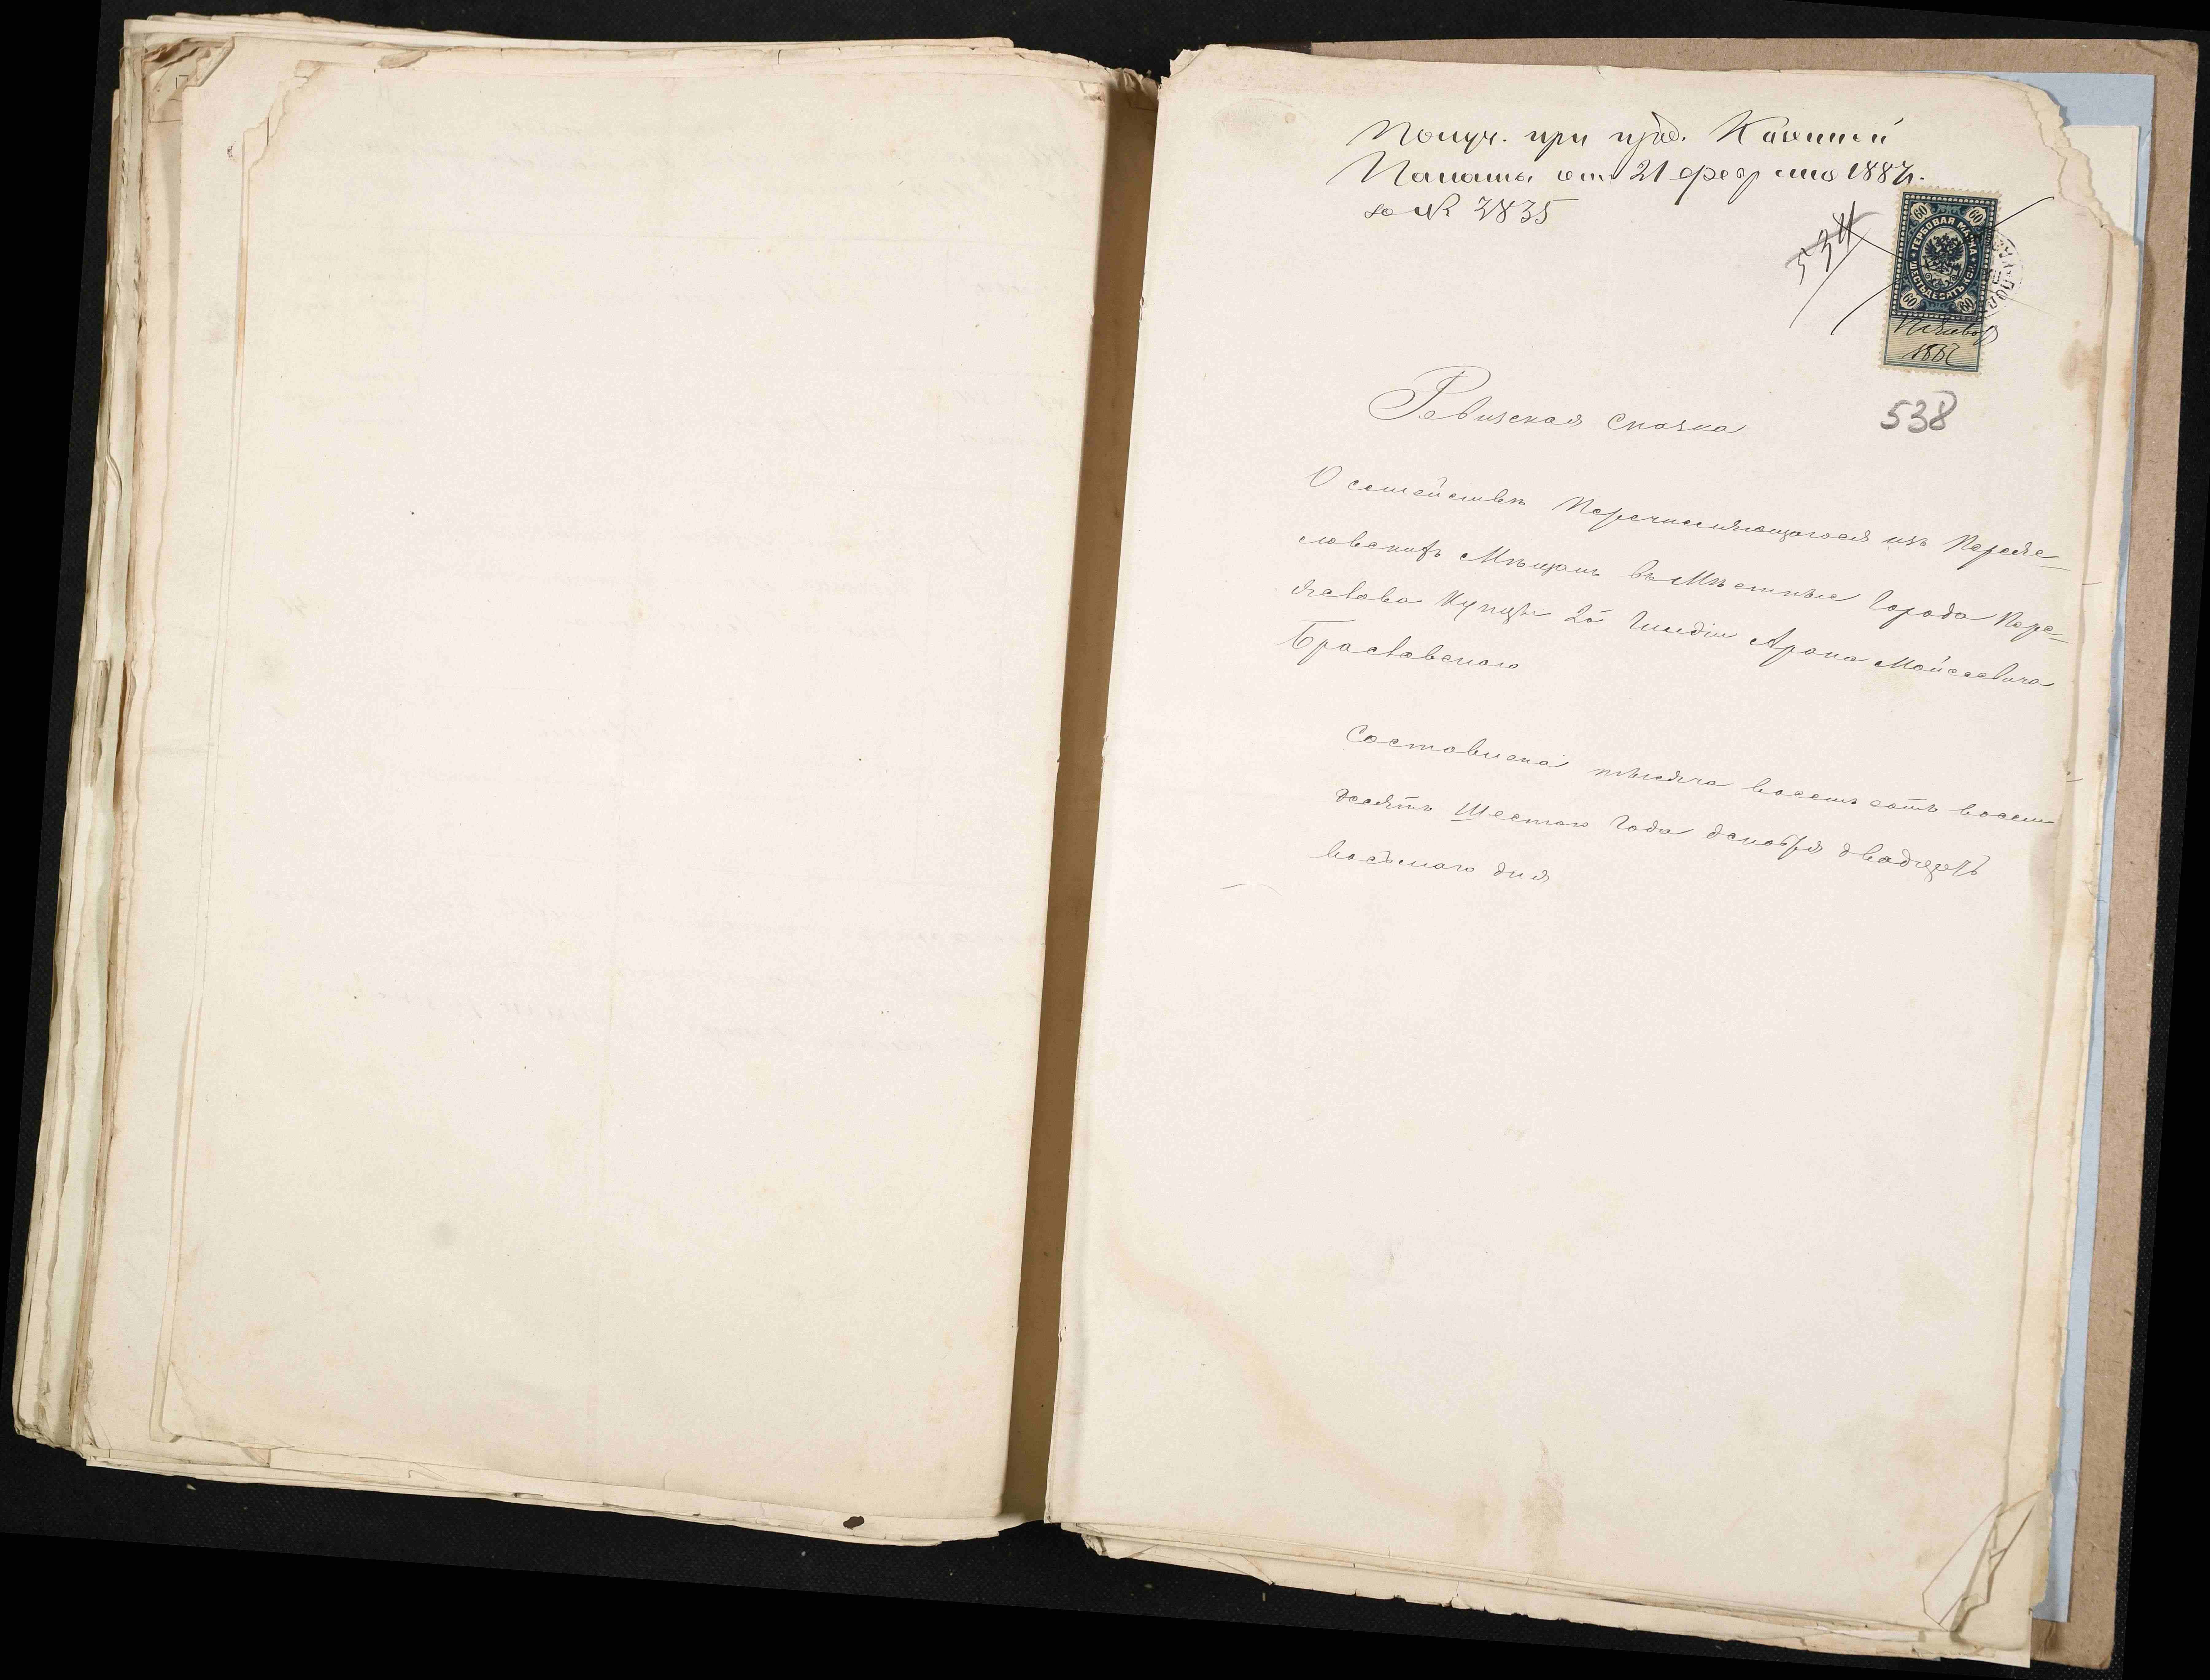 Получ. при пред. Казенной
Палаты от 21 февраля 1887 г.
за № 2835
534
60 60
ГЕРБОВАЯ МАРКА
ШЕСТЬДЕСЯТЪ КОП.
60 60
1887
538
Ревизская сказка
О семействѣ Перечисляющагося изъ Перея-
словскихъ Мѣщанъ въ Мѣстные Города Пере-
яслова Купцы 2й Гильдіи Арона Мойсеевича
Браславского
Составлена тысяча восемь сотъ восем
десятъ Шестого Года декабря двадцать
восьмого дня